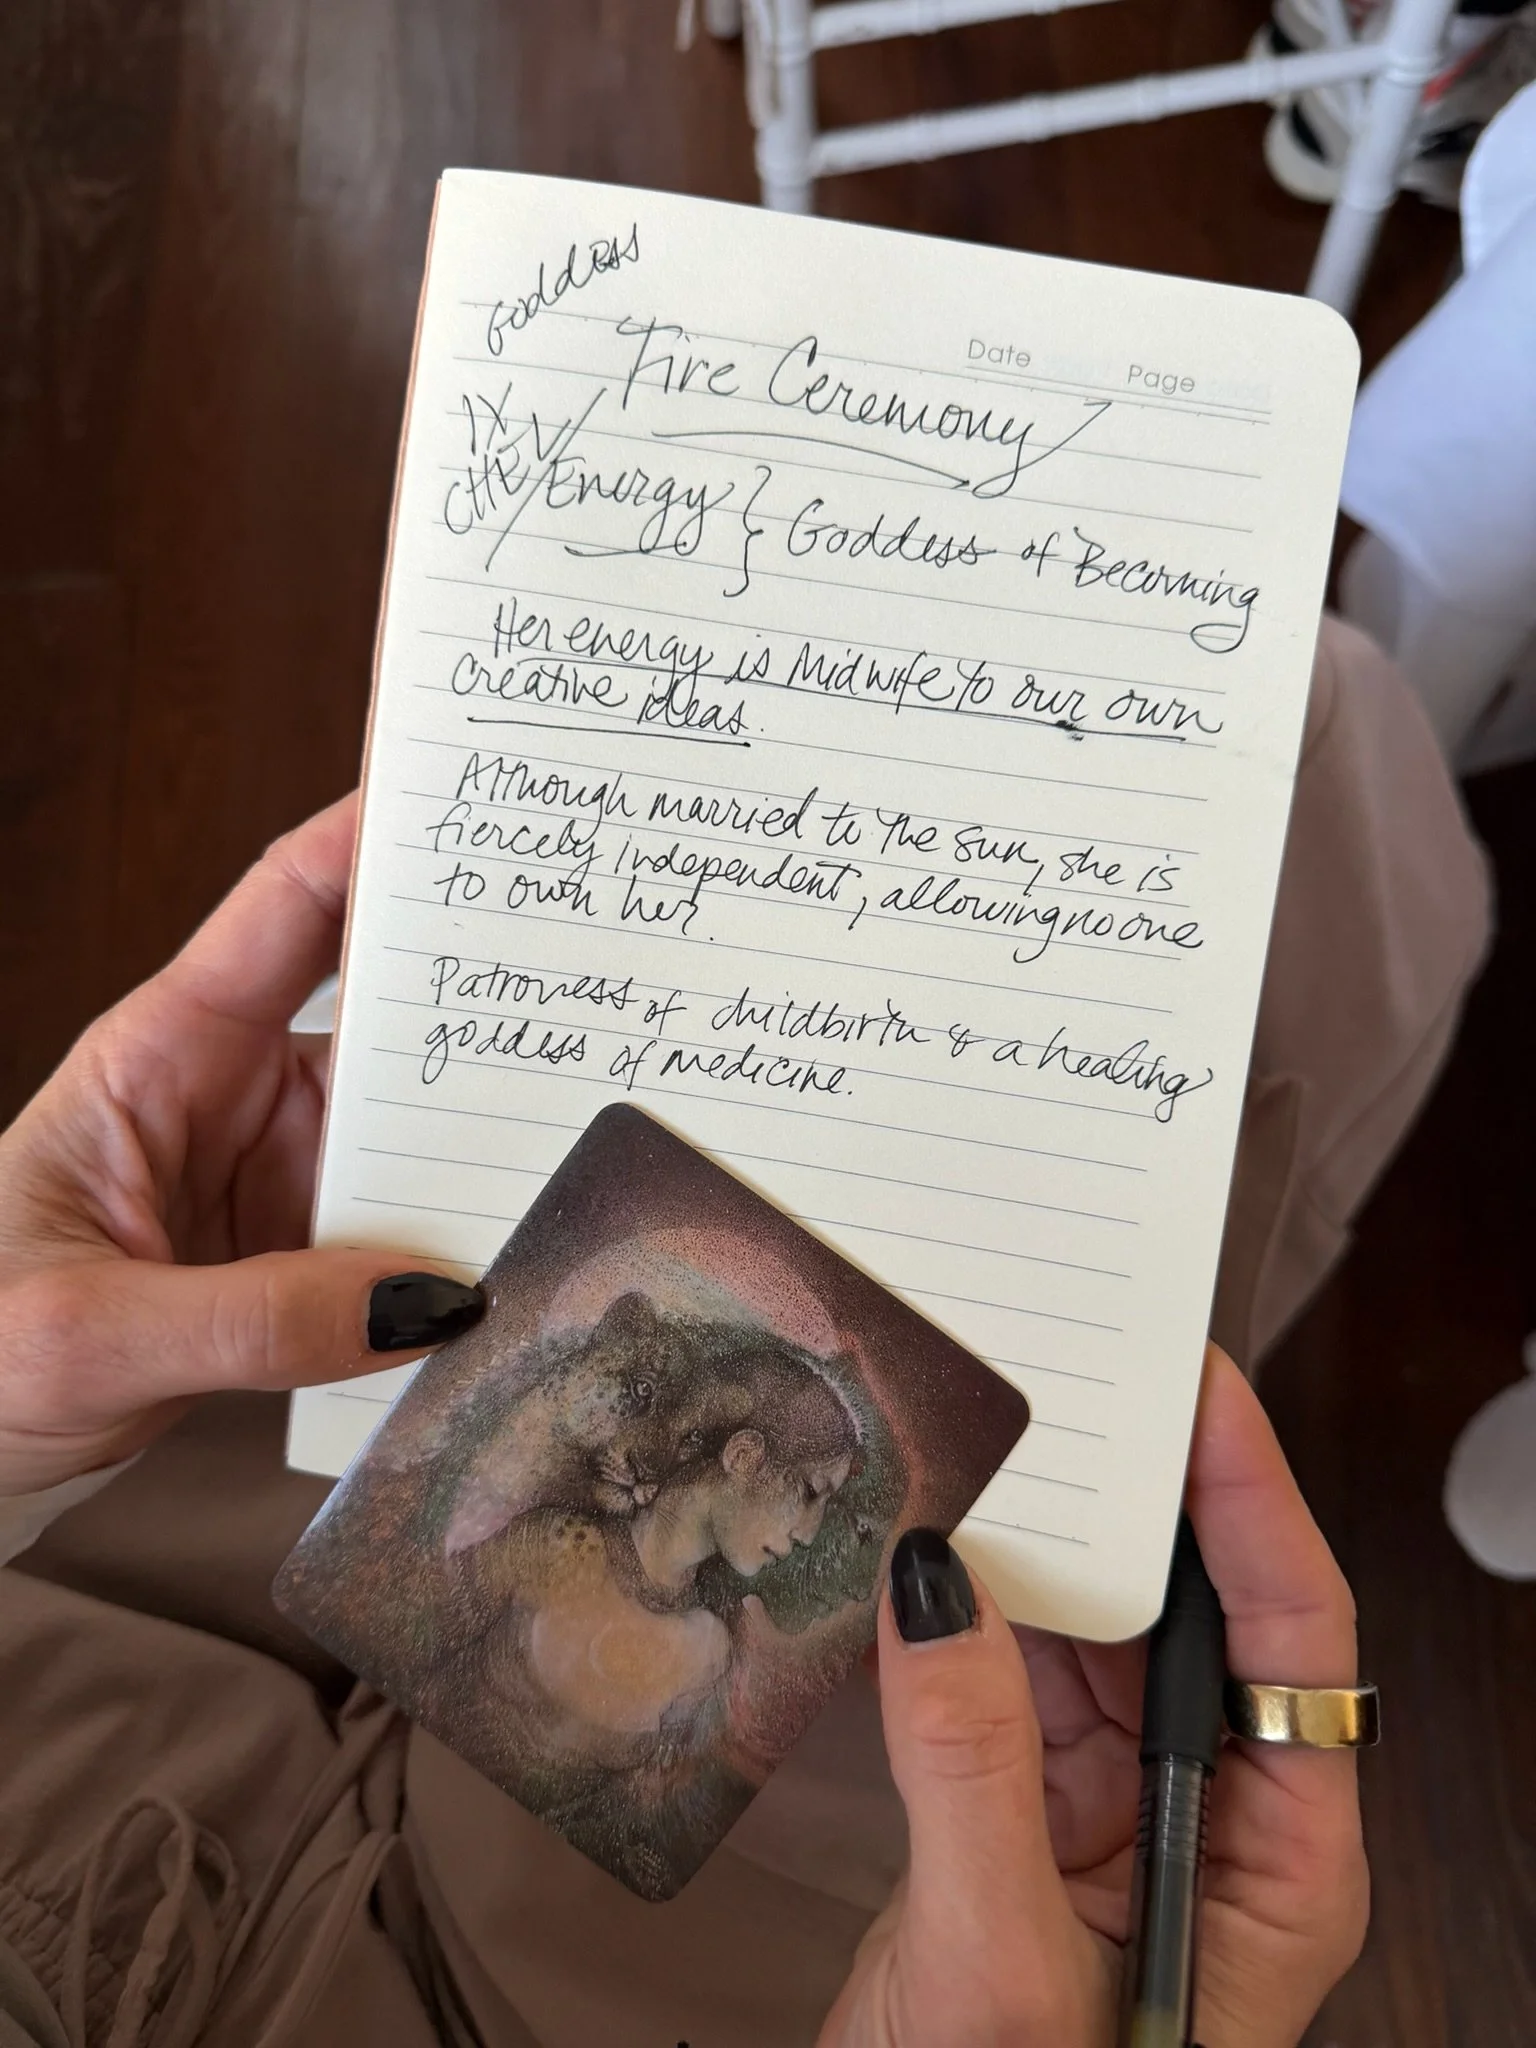 Goddess
Fire Ceremony
Date Page
IX
CHEL
Energy } Goddess of Becoming
Her energy is Midwife to our own
creative ideas.
Although married to the sun, she is
fiercely independent, allowing no one
to own her.
Patroness of childbirth & a healing
goddess of medicine.